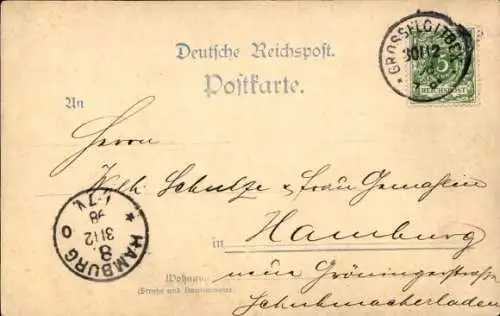 Deutsche Reichspost.
Postkarte.
GROSSFLOTTBEK
30 12
98
5
REICHSPOST
An
Herrn
Wilh. Schultze & Frau Gemahlin
in Hamburg
Wohnung
neue Gröningerstraße
(Straße und Hausnummer)
Schuhmacherladen
HAMBURG
8.
31 12
98
7-7½N.